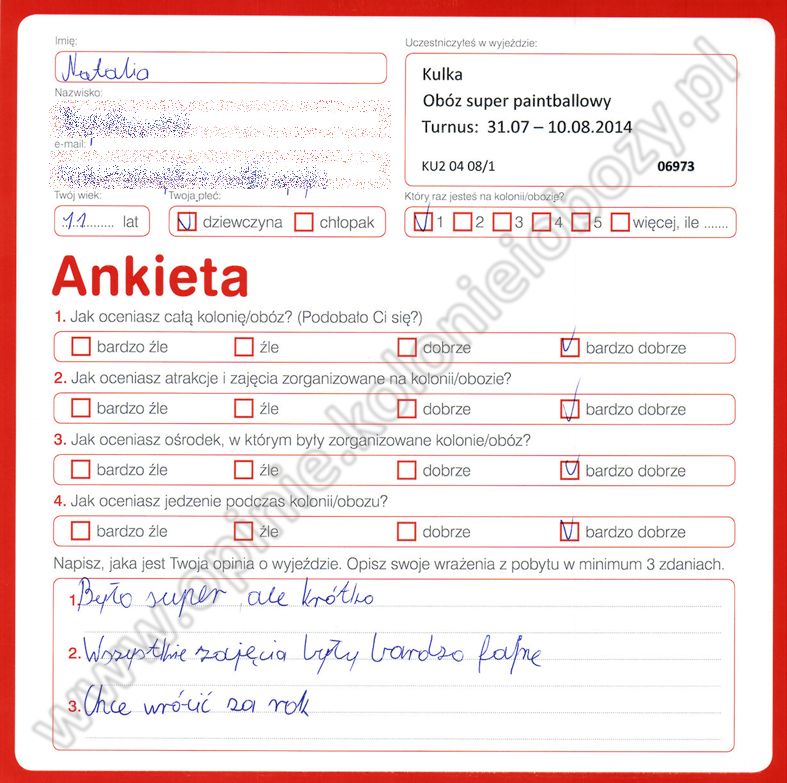 Imię:
Natalia
Nazwisko:
e-mail:
Twój wiek:
11 lat
Twoja płeć:
dziewczyna chłopak
Uczestniczyłeś w wyjeździe:
Kulka
Obóz super paintballowy
Turnus: 31.07 – 10.08.2014
KU2 04 08/1 06973
Który raz jesteś na kolonii/obozie?
1 2 3 4 5 więcej, ile .......
Ankieta
1. Jak oceniasz całą kolonię/obóz? (Podobało Ci się?)
bardzo źle źle dobrze bardzo dobrze
2. Jak oceniasz atrakcje i zajęcia zorganizowane na kolonii/obozie?
bardzo źle źle dobrze bardzo dobrze
3. Jak oceniasz ośrodek, w którym były zorganizowane kolonie/obóz?
bardzo źle źle dobrze bardzo dobrze
4. Jak oceniasz jedzenie podczas kolonii/obozu?
bardzo źle źle dobrze bardzo dobrze
Napisz, jaka jest Twoja opinia o wyjeździe. Opisz swoje wrażenia z pobytu w minimum 3 zdaniach.
1. Było super ale krótko
2. Wszystkie zajęcia były bardzo fajne
3. Chce wrócić za rok
www.opinie.kolonieiobozy.pl